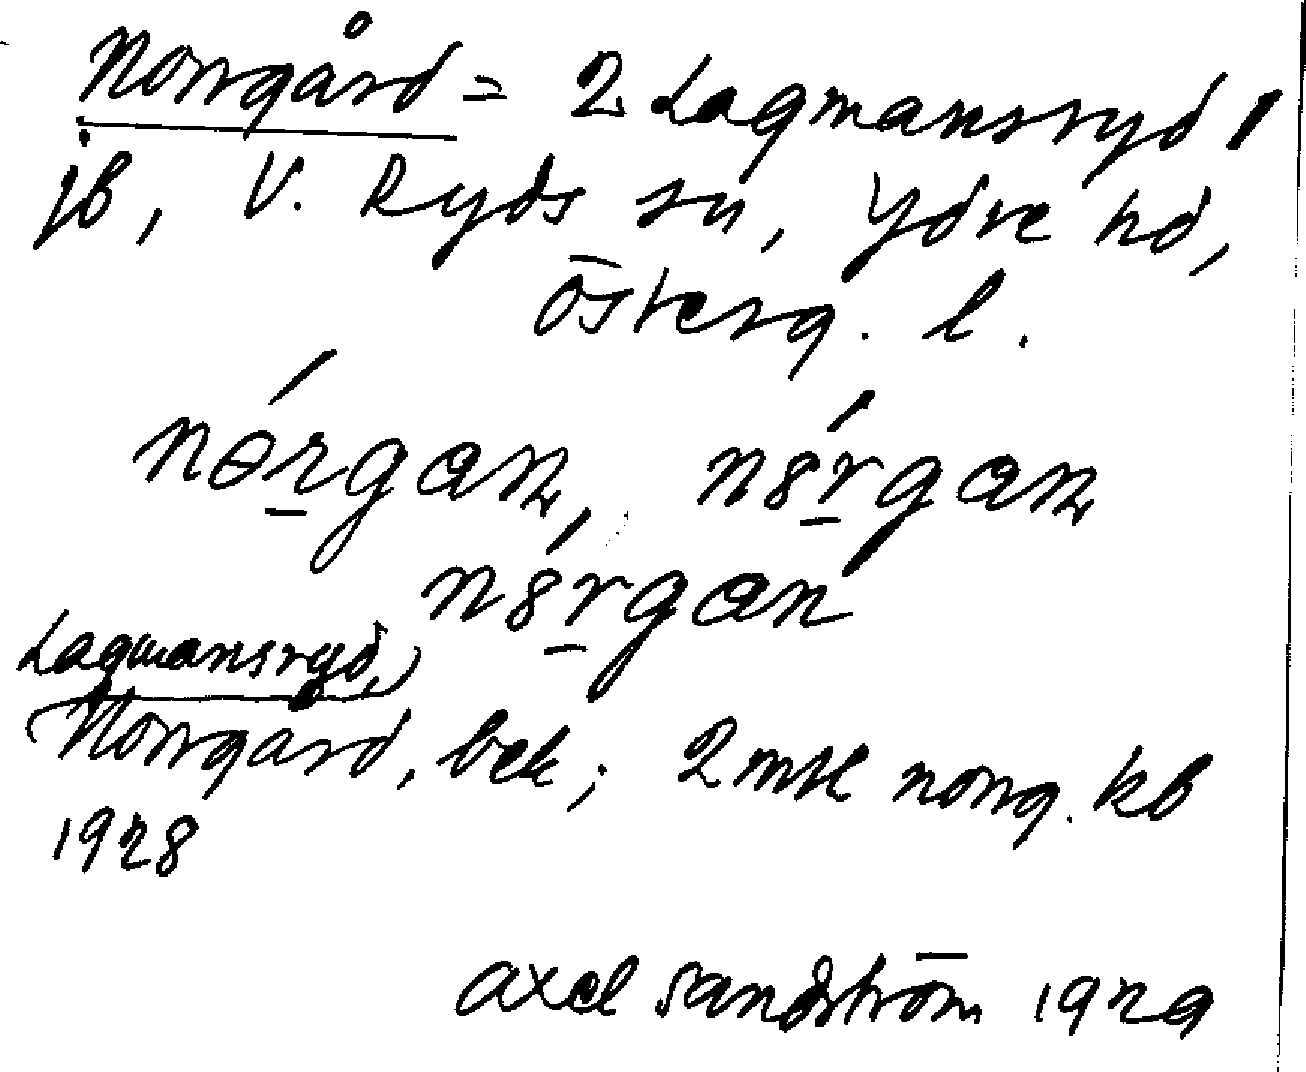 Norrgård = 2 Lagmansryd 1
jb, V. Ryds sn, Ydre hd,
Österg. l.
nǿrgan, n8́rgan
n8́rgan
Lagmansryd,
(Norrgård, bek; 2 mtl norrg. kb
1928
Axel Sandström 1929